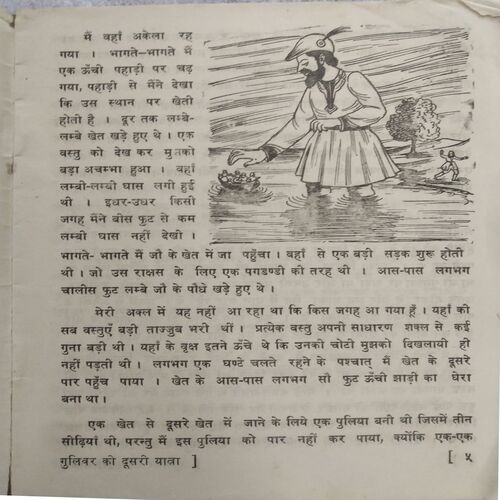 मैं वहाँ अकेला रह
गया । भागते—भागते मैं
एक ऊँची पहाड़ी पर चढ़
गया, पहाड़ी से मैंने देखा
कि उस स्थान पर खेती
होती है । दूर तक लम्बे-
लम्बे खेत खड़े हुए थे । एक
वस्तु को देख कर मुझको
बड़ा अचम्भा हुआ । वहाँ
लम्बी-लम्बी घास लगी हुई
थी । इधर-उधर किसी
जगह मैंने बीस फुट से कम
लम्बी घास नहीं देखी ।
भागते- भागते मैं जौ के खेत में जा पहुँचा । वहाँ से एक बड़ी सड़क शुरू होती
थी । जो उस राक्षस के लिए एक पगडण्डी की तरह थी । आस-पास लगभग
चालीस फुट लम्बे जौ के पौधे खड़े हुए थे ।
मेरी अक्ल में यह नहीं आ रहा था कि किस जगह आ गया हूँ । यहाँ की
सब वस्तुएँ बड़ी ताज्जुब भरी थीं । प्रत्येक वस्तु अपनी साधारण शक्ल से कई
गुना बड़ी थी । यहाँ के वृक्ष इतने ऊँचे थे कि उनकी चोटी मुझको दिखलायी ही
नहीं पड़ती थी । लगभग एक घण्टे चलते रहने के पश्चात् मैं खेत के दूसरे
पार पहुँच पाया । खेत के आस-पास लगभग सौ फुट ऊँची झाड़ी का घेरा
बना था ।
एक खेत से दूसरे खेत में जाने के लिये एक पुलिया बनी थी जिसमें तीन
सीढ़ियां थी, परन्तु मैं इस पुलिया को पार नहीं कर पाया, क्योंकि एक-एक
गुलिवर की दूसरी यात्रा ] [ ५